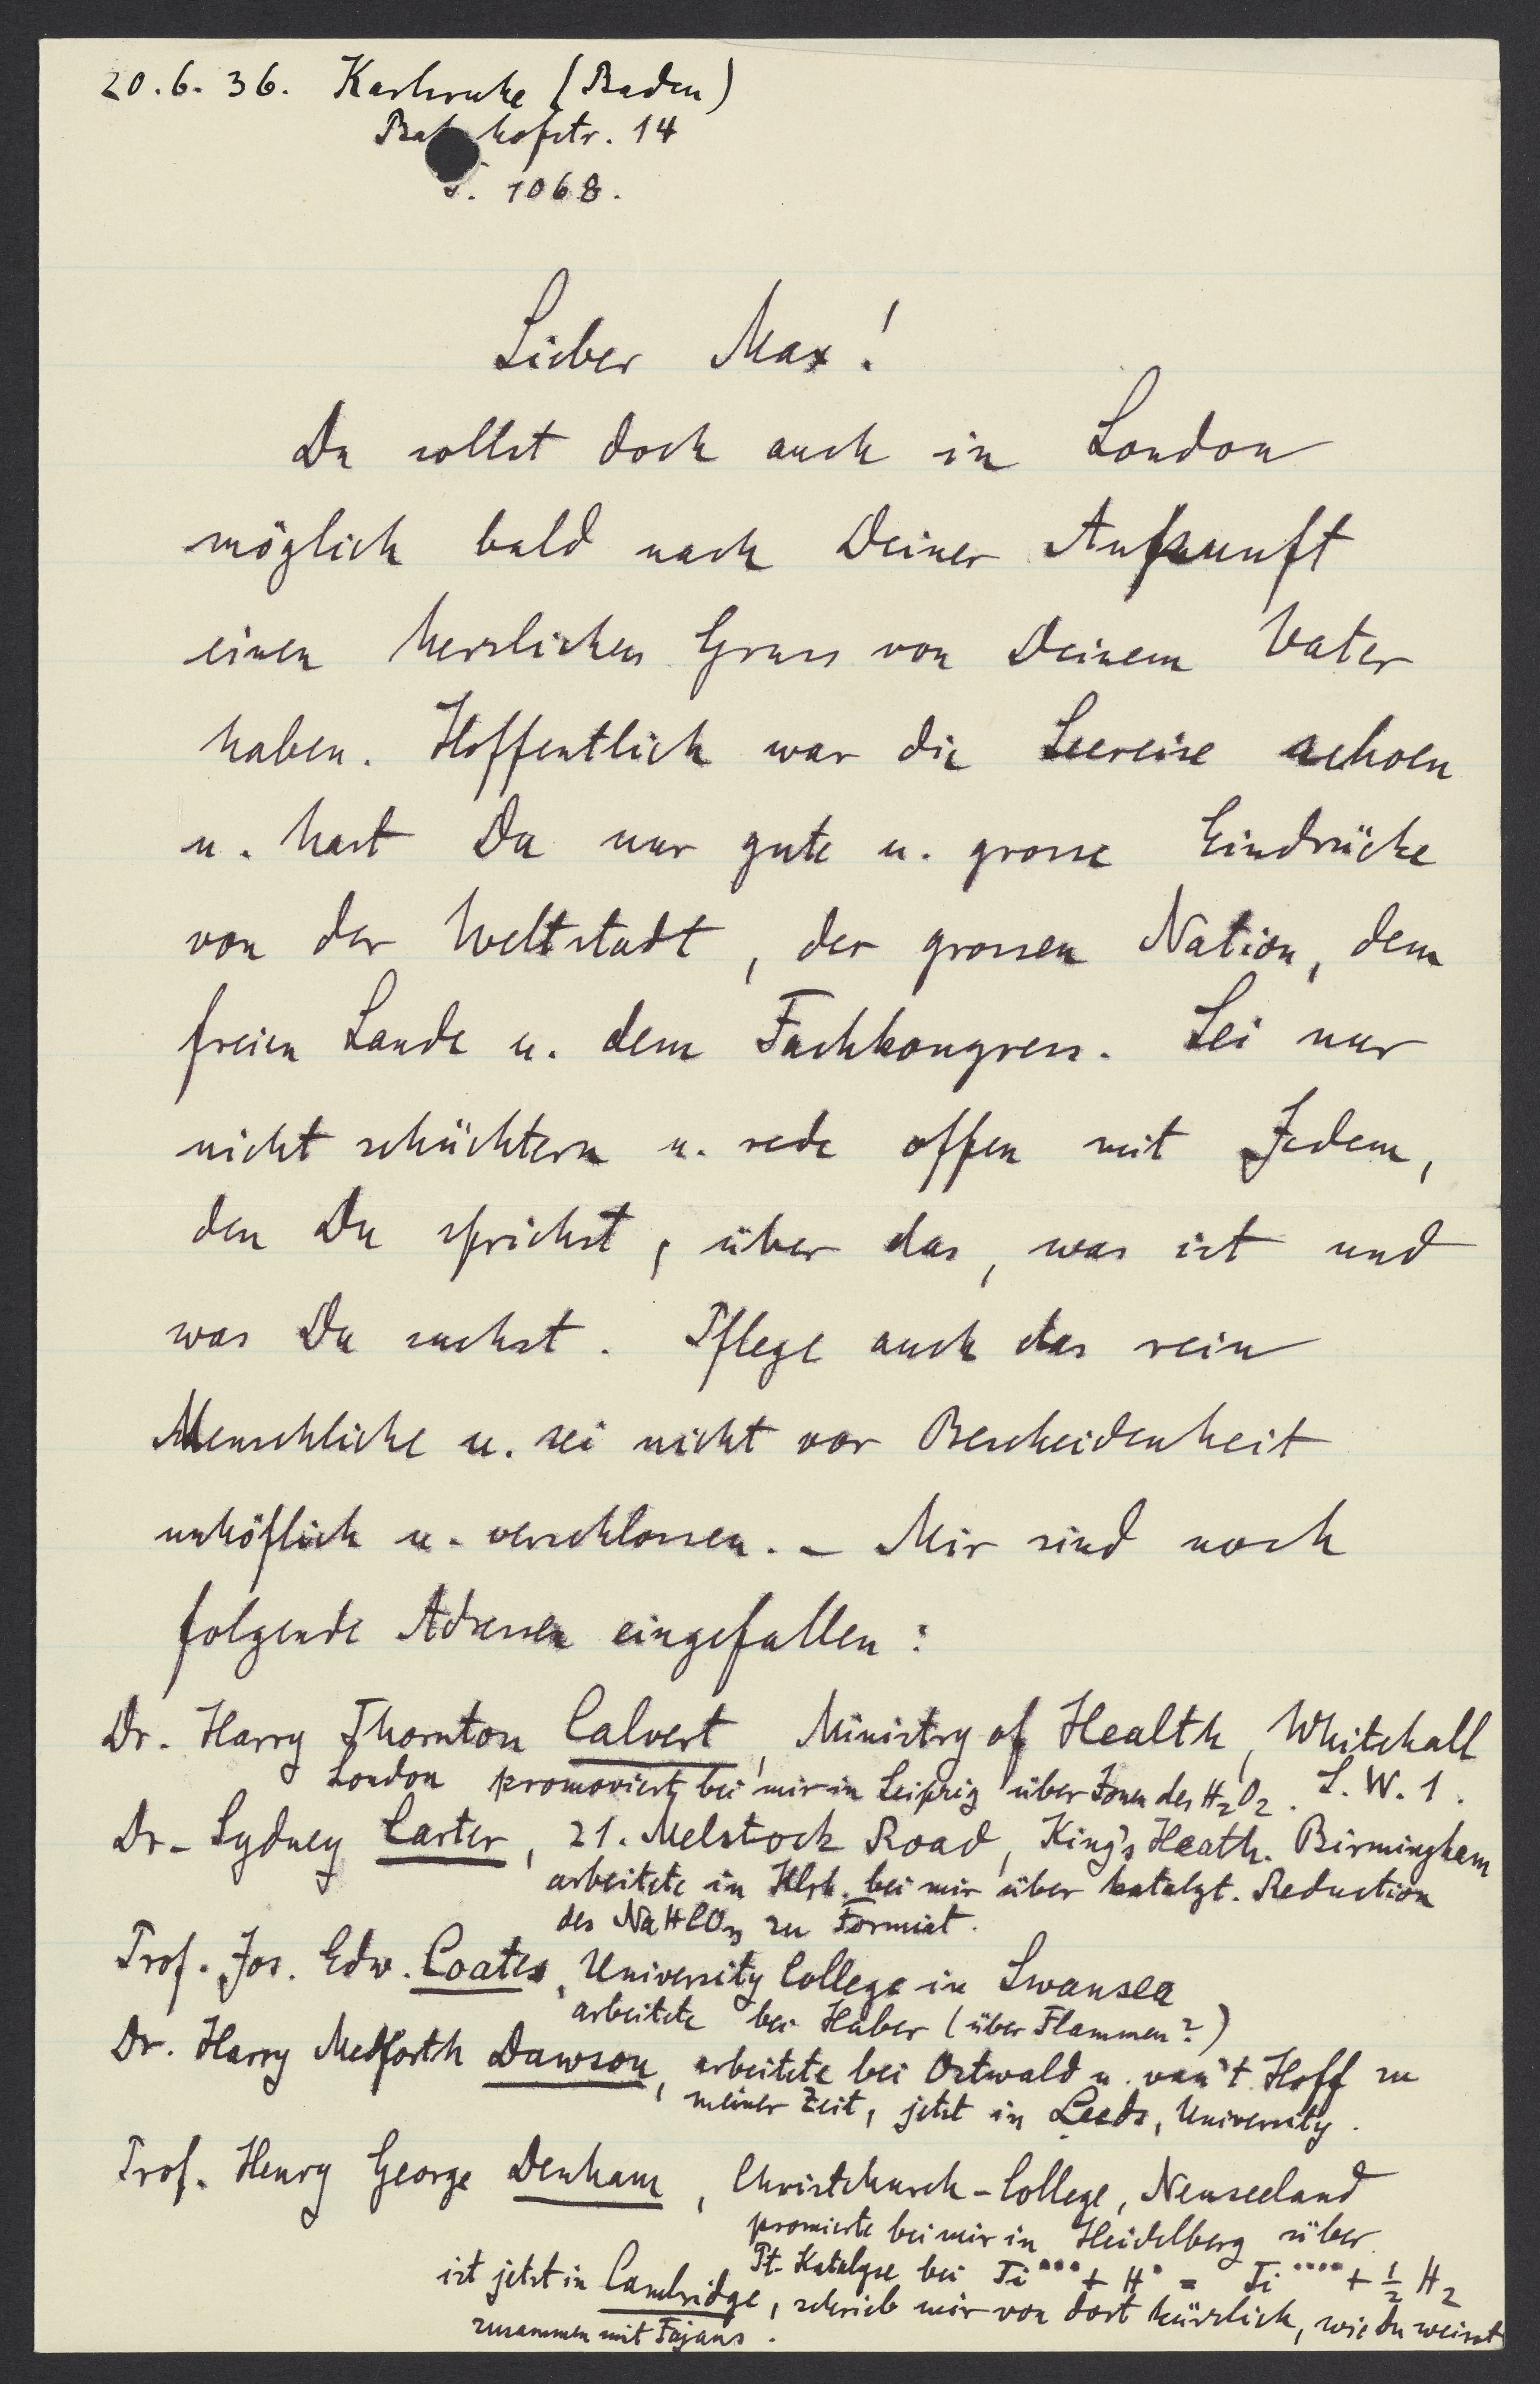 20.6.36. Karlsruhe (Baden)
Bahnhofstr. 14
T. 1068.
Lieber Max!
Du sollst doch auch in London
möglich bald nach Deiner Ankunft
einen herzlichen Gruss von Deinem Vater
haben. Hoffentlich war die Seereise schoen
u. hast Du nur gute u. grosse Eindrücke
von der Weltstadt, der grossen Nation, dem
freien Lande u. dem Fachkongress. Sei nur
nicht schüchtern u. rede offen mit Jedem,
den Du sprichst, über das, was ist und
was Du suchst. Pflege auch das rein
Menschliche u. sei nicht vor Bescheidenheit
unhöflich u. verschlossen. – Mir sind noch
folgende Adressen eingefallen:
Dr. Harry Thornton Calvert, Ministry of Health, Whitehall
London promoviert bei mir in Leipzig über Ionen des H₂O₂. S.W.1.
Dr. Sydney Carter, 21. Melstock Road, King's Heath. Birmingham
arbeitete in Klsr. bei mir über katalyt. Reduction
des NaHCO₃ zu Formiat.
Prof. Jos. Edw. Coates, University College in Swansea
arbeitete bei Haber (über Flammen?)
Dr. Harry Medforth Dawson, arbeitete bei Ostwald u. van't Hoff zu
meiner Zeit, jetzt in Leeds, University.
Prof. Henry George Denham, Christchurch-College, Neuseeland
promierte bei mir in Heidelberg über
Pt-Katalyse bei Ti••• + H• = Ti•••• + ½ H₂
ist jetzt in Cambridge, schrieb mir von dort kürzlich, wie Du weisst
zusammen mit Fajans.